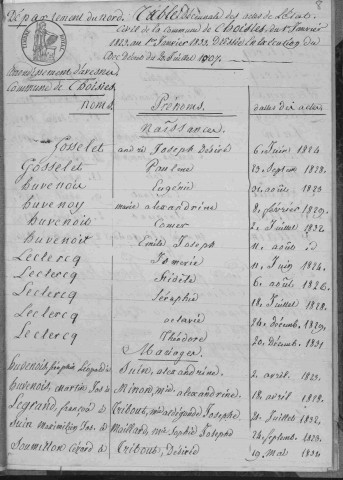 Département du nord. Table Décennale des actes de l'Etat-
Civil de la Commune de Choisies, du 1er Janvier
1823 au 1er Janvier 1833. Dressée en exécution du
Décret du 20 Juillet 1807.
Arrondissement d'avesnes
Commune de Choisies
noms Prénoms. dattes des actes
Naissances
Gosselet andré Joseph Désiré 6 Juin 1824
Gosselet 23 Septembre 1828.
huvenoit Eugénie 1823
huvenoy marie alexandrine 8 février 1829
huvenoit Comer 2 Juillet 1832
huvenoit Emile Joseph 11 août
Leclercq 11 Juin 1824.
Leclercq 6 août 1826
Leclercq Séraphie 18 Juillet 1828.
Leclercq octavie 24 décemb. 1829.
Leclercq Théodore 20 décemb. 1831
Mariages
huvenoit, Léopold à Suin, alexandrine. 2 avril. 1823.
huvenoit, martin Jos à Minon, mie alexandrine. 18 avril. 1828.
Legrand, françois à Tribout, mie Josephe 20 Juillet 1832,
Suin Maximilien Jos. à Maillard, mie Sophie Joseph 24 Septemb. 1823.
Soumillon Gérard à Tribout, Désirée 19 Mai 1830